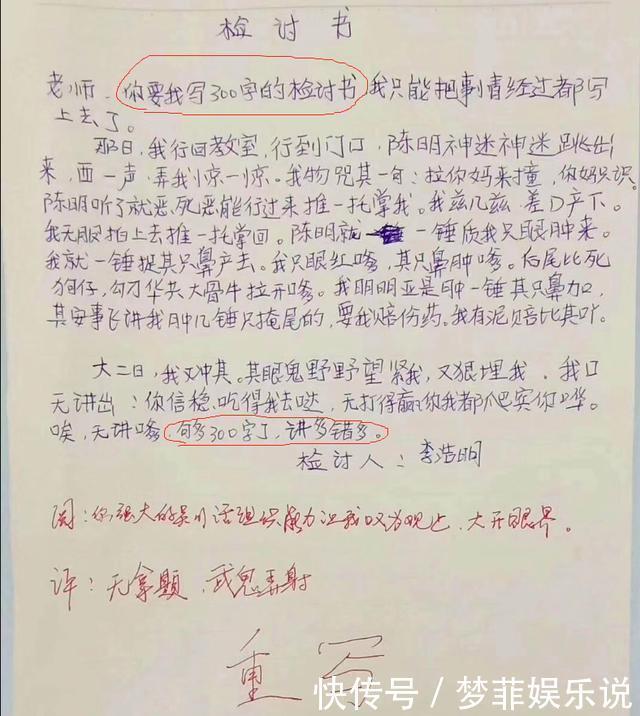 检讨书
老师,你要我写300字的检讨书我只能把事情经过都写
上去了。
那日,我行回教室,行到门口,陈明神迷神迷跳出
来,西一声,弄我惊一惊。我物咒其一句:拉你妈来撞,你妈只识。
陈明听了就恶,死恶能行过来推一托掌我。我兹几兹,差D产下。
我无服拍上去推一托掌回。陈明就一锤质我只眼肿来。
我就一锤捉其只鼻产去。我只眼红嗲,其只鼻肿嗲。后尾比死
狗仔,勾刀华共大骨牛拉开嗲。我明明亚是中一锤其只鼻加,
其安事飞讲我中几锤只掩尾的,要我赔份药。我有泥赔比其吖。
大二日,我又冲其。其眼鬼野野望紧我,又狠埋我,我口
无讲出:你信稳吃得我去哒,无打得赢你我都巴宾你哗。
唉,无讲嗲,句多300字了,讲多错多。
检讨人:李浩明
阅:你强大的吴川话组织能力让我叹为观止,大开眼界。
评:无拿题,武鬼弄射
重写
快传号/梦菲娱乐说